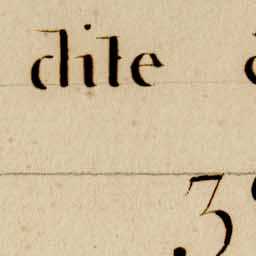 dite
3